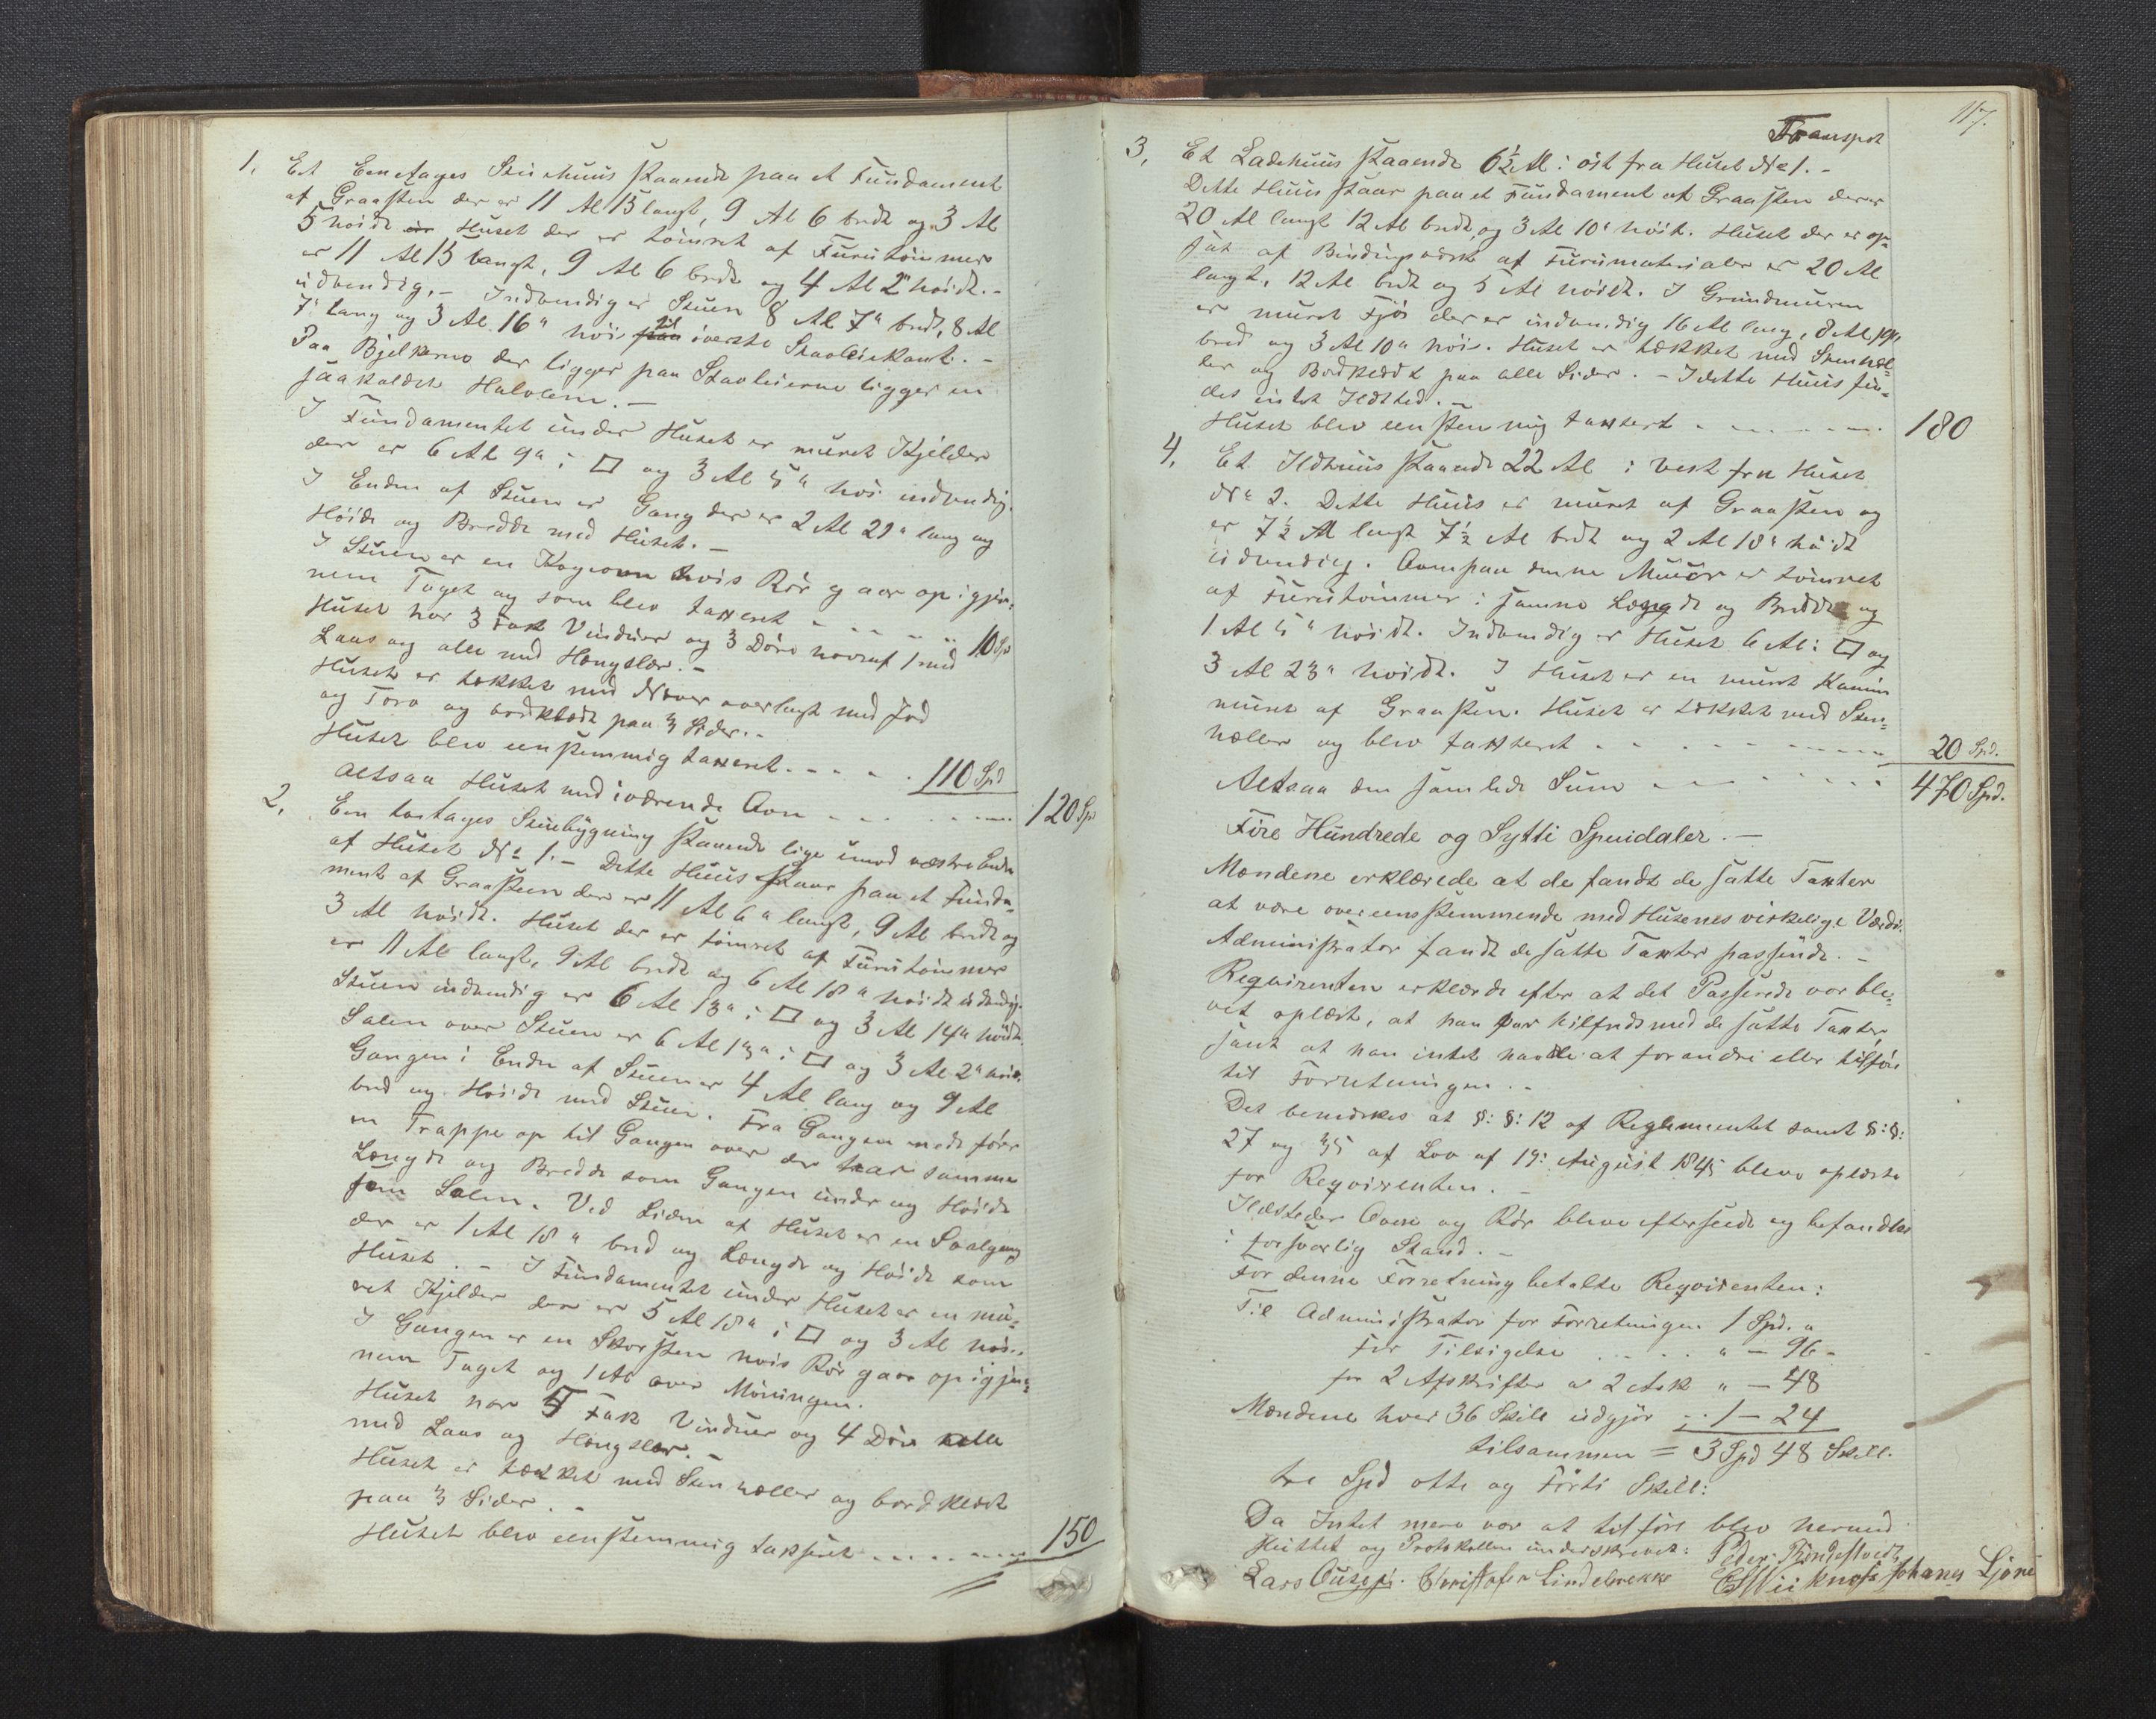 1. Et Eenetages Stuehuus staaende paa et Fundament
af Graasten der er 11 Al 15 langt, 9 Al 6 bredt og 3 Al
5 høidt Huset der er tømret af Furutømmer
er 11 Al 15 langt, 9 Al 6 bredt og 4 Al 2" høidt.-
udvendig.- Indvendig er Stuen 8 Al 7" bred, 8 Al
7" lang og 3 Al 16" høi til øverste Stavleiekant.-
Paa Bjelkerne der ligger paa Stavleierne ligger en
saakaldet Halvlem.-
I Fundamentet under Huset er muret Kjelder
der er 6 Al 9" i □ og 3 Al 5" høi indvendig.
I Enden af Stuen er Gang der er 2 Al 21" lang og
Høide og Bredde med Huset.-
I Stuen er en Kogeovn hvis Rør gaar op igjen-
nem Taget og som blev taxeret - - - - - 10 Sp
Huset har 3 Fak Vinduer og 3 Døre hvoraf 1 med
Laas og alle med Hængsler.-
Huset er tækket med Næver overlagt med Jord
og Torv og bordklædt paa 3 Sider.-
Huset blev eenstemmig taxeret. - - - - 110 Spd
Altsaa Huset med iværende Ovn - - - - - - 120 Sp
2. Een toetages Stuebygning staaende lige imod vestre Ende
af Huset № 1.- Dette Huus staar paa et Funda-
ment af Graasteen der er 11 Al 6" langt, 9 Al bredt og
3 Al høidt. Huset der er tømret af Furutømmer
er 11 Al langt, 9 Al bredt og 6 Al 18" høidt udvendig.
Stuen indvendig er 6 Al 13" i □ og 3 Al 14" høidt.
Salen over Stuen er 6 Al 13" i □ og 3 Al 2" høi.
Gangen i Enden af Stuen er 4 Al lang og 9 Al
bred og Høide med Stuen. Fra Gangen nede fører
en Trappe op til Gangen over der har samme
Længde og Bredde som Gangen under og Høide
som Salen. Ved Siden af Huset er en Svalgang
der er 1 Al 18" bred og Længde og Høide som
Huset.- I Fundamentet under Huset er en mu-
ret Kjelder der er 5 Al 18" i □ og 3 Al høi.
I Gangen er en Skorsten hvis Rør gaar op igjen-
nem Taget og 1 Al over Møningen.
Huset har 5 Fak Vinduer og 4 Døre alle
med Laas og Hængsler.-
Huset er tækket med Steenheller og bordklædt
paa 3 Sider.-
Huset blev eenstemmig taxseret - - - - - - 150
117.
Transport
3. Et Ladehuus staaende 6½ Al: øst fra Huset № 1.-
Dette Huus staar paa et Fundament af Graasten der er
20 Al langt 12 Al bredt, og 3 Al 10" høit. Huset der er op-
sat af Bindingsværk af Furumaterialer er 20 Al
langt, 12 Al bredt og 5 Al høidt. I Grundmuren
er muret Fjøs der er indvendig 16 Al lang, 8 Al
bred og 3 Al 10" høi. Huset er tækket med Steenhæl-
ler og Bordklædt paa alle Sider.- I dette Huus fin-
des intet Ildsted.-
Huset blev eenstemmig taxsert - - - - - - - 180
4. Et Ildhuus staaende 22 Al i vest fra Huset
№ 2. Dette Huus er muret af Graasten og
er 7½ Al langt 7½ Al bredt og 2 Al 18" høidt
udvendig. Ovenpaa denne Muur er tømret
af Furutømmer i samme Længde og Bredde og
1 Al 5" høidt. Indvendig er Huset 6 Al i □ og
3 Al 23" høidt. I Huset er en muret Kamin
muret af Graasten. Huset er tækket med Steen-
hæller og blev taxseret - - - - - - - - - 20 Spd.
Altsaa den samlede Sum - - - - - - - 470 Spd.
Fire Hundrede og Sytti Speuidaler.-
Mændene erklærede at de fandt de satte Taxter
at være overeensstemmende med Husenes virkelige Værdi.
Administrator fandt de satte Taxter passende.-
Reqvirenten erklærde efter at det Passerede var ble-
vet oplæst, at han var tilfreds med de satte Taxter,
samt at han intet havde at forandre eller tilføie
til Forretningen.-
Det bemærkes at §: §: 12 af Reglementet samt §: §:
27 og 35 af Lov af 19: August 1845 bleve oplæste
for Reqvirenten.-
Ildsteder Ovne og Rør bleve efterseede og befandtes
i forsvarlig Stand.-
For denne Forretning betalte Reqvirenten:
Til Administrator for Forretningen 1 Spd. "
For Tilsigelse . - - . " - 96 -
for 2 Afskrifter a 2 Ark " - 48
Mændene hver 36 Skill udgjør - . 1 - 24
tilsammen = 3 Spd 48 Skill.
tre Spd otte og førti Skill:
Da Intet mere var at tilføre blev hermed
sluttet og Protokollen underskrevet:
Lars Christofer Lindebrekke Johannes